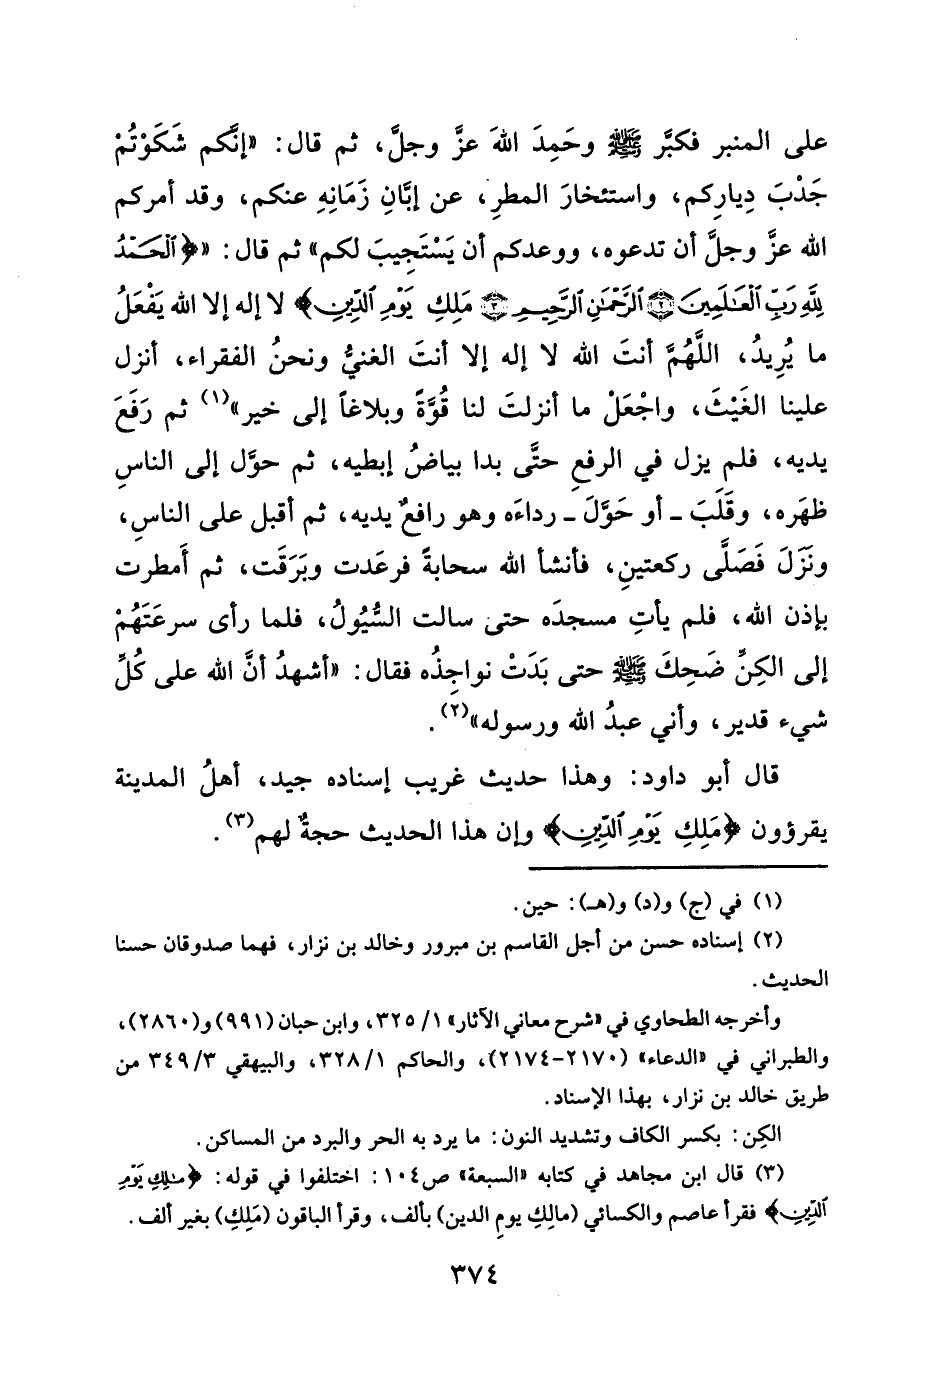 على المنبر فكبَّر ﷺ وحَمِدَ اللهَ عزَّ وجلَّ، ثم قال: «إنَّكم شَكَوْتُمْ
جَدْبَ دِيارِكم، واستئخارَ المطرِ، عن إبَّانِ زَمَانِهِ عنكم، وقد أمركم
الله عزَّ وجلَّ أن تدعوه، ووعدكم أن يَسْتَجِيبَ لكم» ثم قال: «﴿ٱلْحَمْدُ
لِلَّهِ رَبِّ ٱلْعَـٰلَمِينَ ۝٢ ٱلرَّحْمَـٰنِ ٱلرَّحِيمِ ۝٣ مَلِكِ يَوْمِ ٱلدِّينِ﴾ لا إله إلا الله يَفْعَلُ
ما يُرِيدُ، اللَّهُمَّ أنتَ الله لا إله إلا أنتَ الغنيُّ ونحنُ الفقراء، أنزل
علينا الغَيْثَ، واجْعَلْ ما أنزلتَ لنا قُوَّةً وبلاغاً إلى خير»(١) ثم رَفَعَ
يديه، فلم يزل في الرفعِ حتَّى بدا بياضُ إبطيه، ثم حوَّل إلى الناسِ
ظهَره، وقَلَبَ ـ أو حَوَّلَ ـ رداءَه وهو رافعٌ يديه، ثم أقبل على الناسِ،
ونَزَلَ فَصَلَّى ركعتينِ، فأنشأ الله سحابةً فرعَدت وبَرَقَت، ثم أَمطرت
بإذن الله، فلم يأتِ مسجدَه حتى سالت السُّيُولُ، فلما رأى سرعَتَهُمْ
إلى الكِنِّ ضَحِكَ ﷺ حتى بَدَتْ نواجِذُه فقال: «أشهدُ أنَّ الله على كُلِّ
شيء قدير، وأني عبدُ الله ورسوله»(٢).
قال أبو داود: وهذا حديث غريب إسناده جيد، أهلُ المدينة
يقرؤون ﴿مَلِكِ يَوْمِ ٱلدِّينِ﴾ وإن هذا الحديث حجةٌ لهم(٣).
(١) في (ج) و(د) و(هـ): حين.
(٢) إسناده حسن من أجل القاسم بن مبرور وخالد بن نزار، فهما صدوقان حسنا
الحديث.
وأخرجه الطحاوي في «شرح معاني الآثار» ١/ ٣٢٥، وابن حبان (٩٩١) و(٢٨٦٠)،
والطبراني في «الدعاء» (٢١٧٠-٢١٧٤)، والحاكم ١/ ٣٢٨، والبيهقي ٣/ ٣٤٩ من
طريق خالد بن نزار، بهذا الإسناد.
الكِن: بكسر الكاف وتشديد النون: ما يرد به الحر والبرد من المساكن.
(٣) قال ابن مجاهد في كتابه «السبعة» ص١٠٤: اختلفوا في قوله: ﴿مَـٰلِكِ يَوْمِ
ٱلدِّينِ﴾ فقرأ عاصم والكسائي (مالِكِ يومِ الدين) بألف، وقرأ الباقون (مَلِكِ) بغير ألف.
٣٧٤